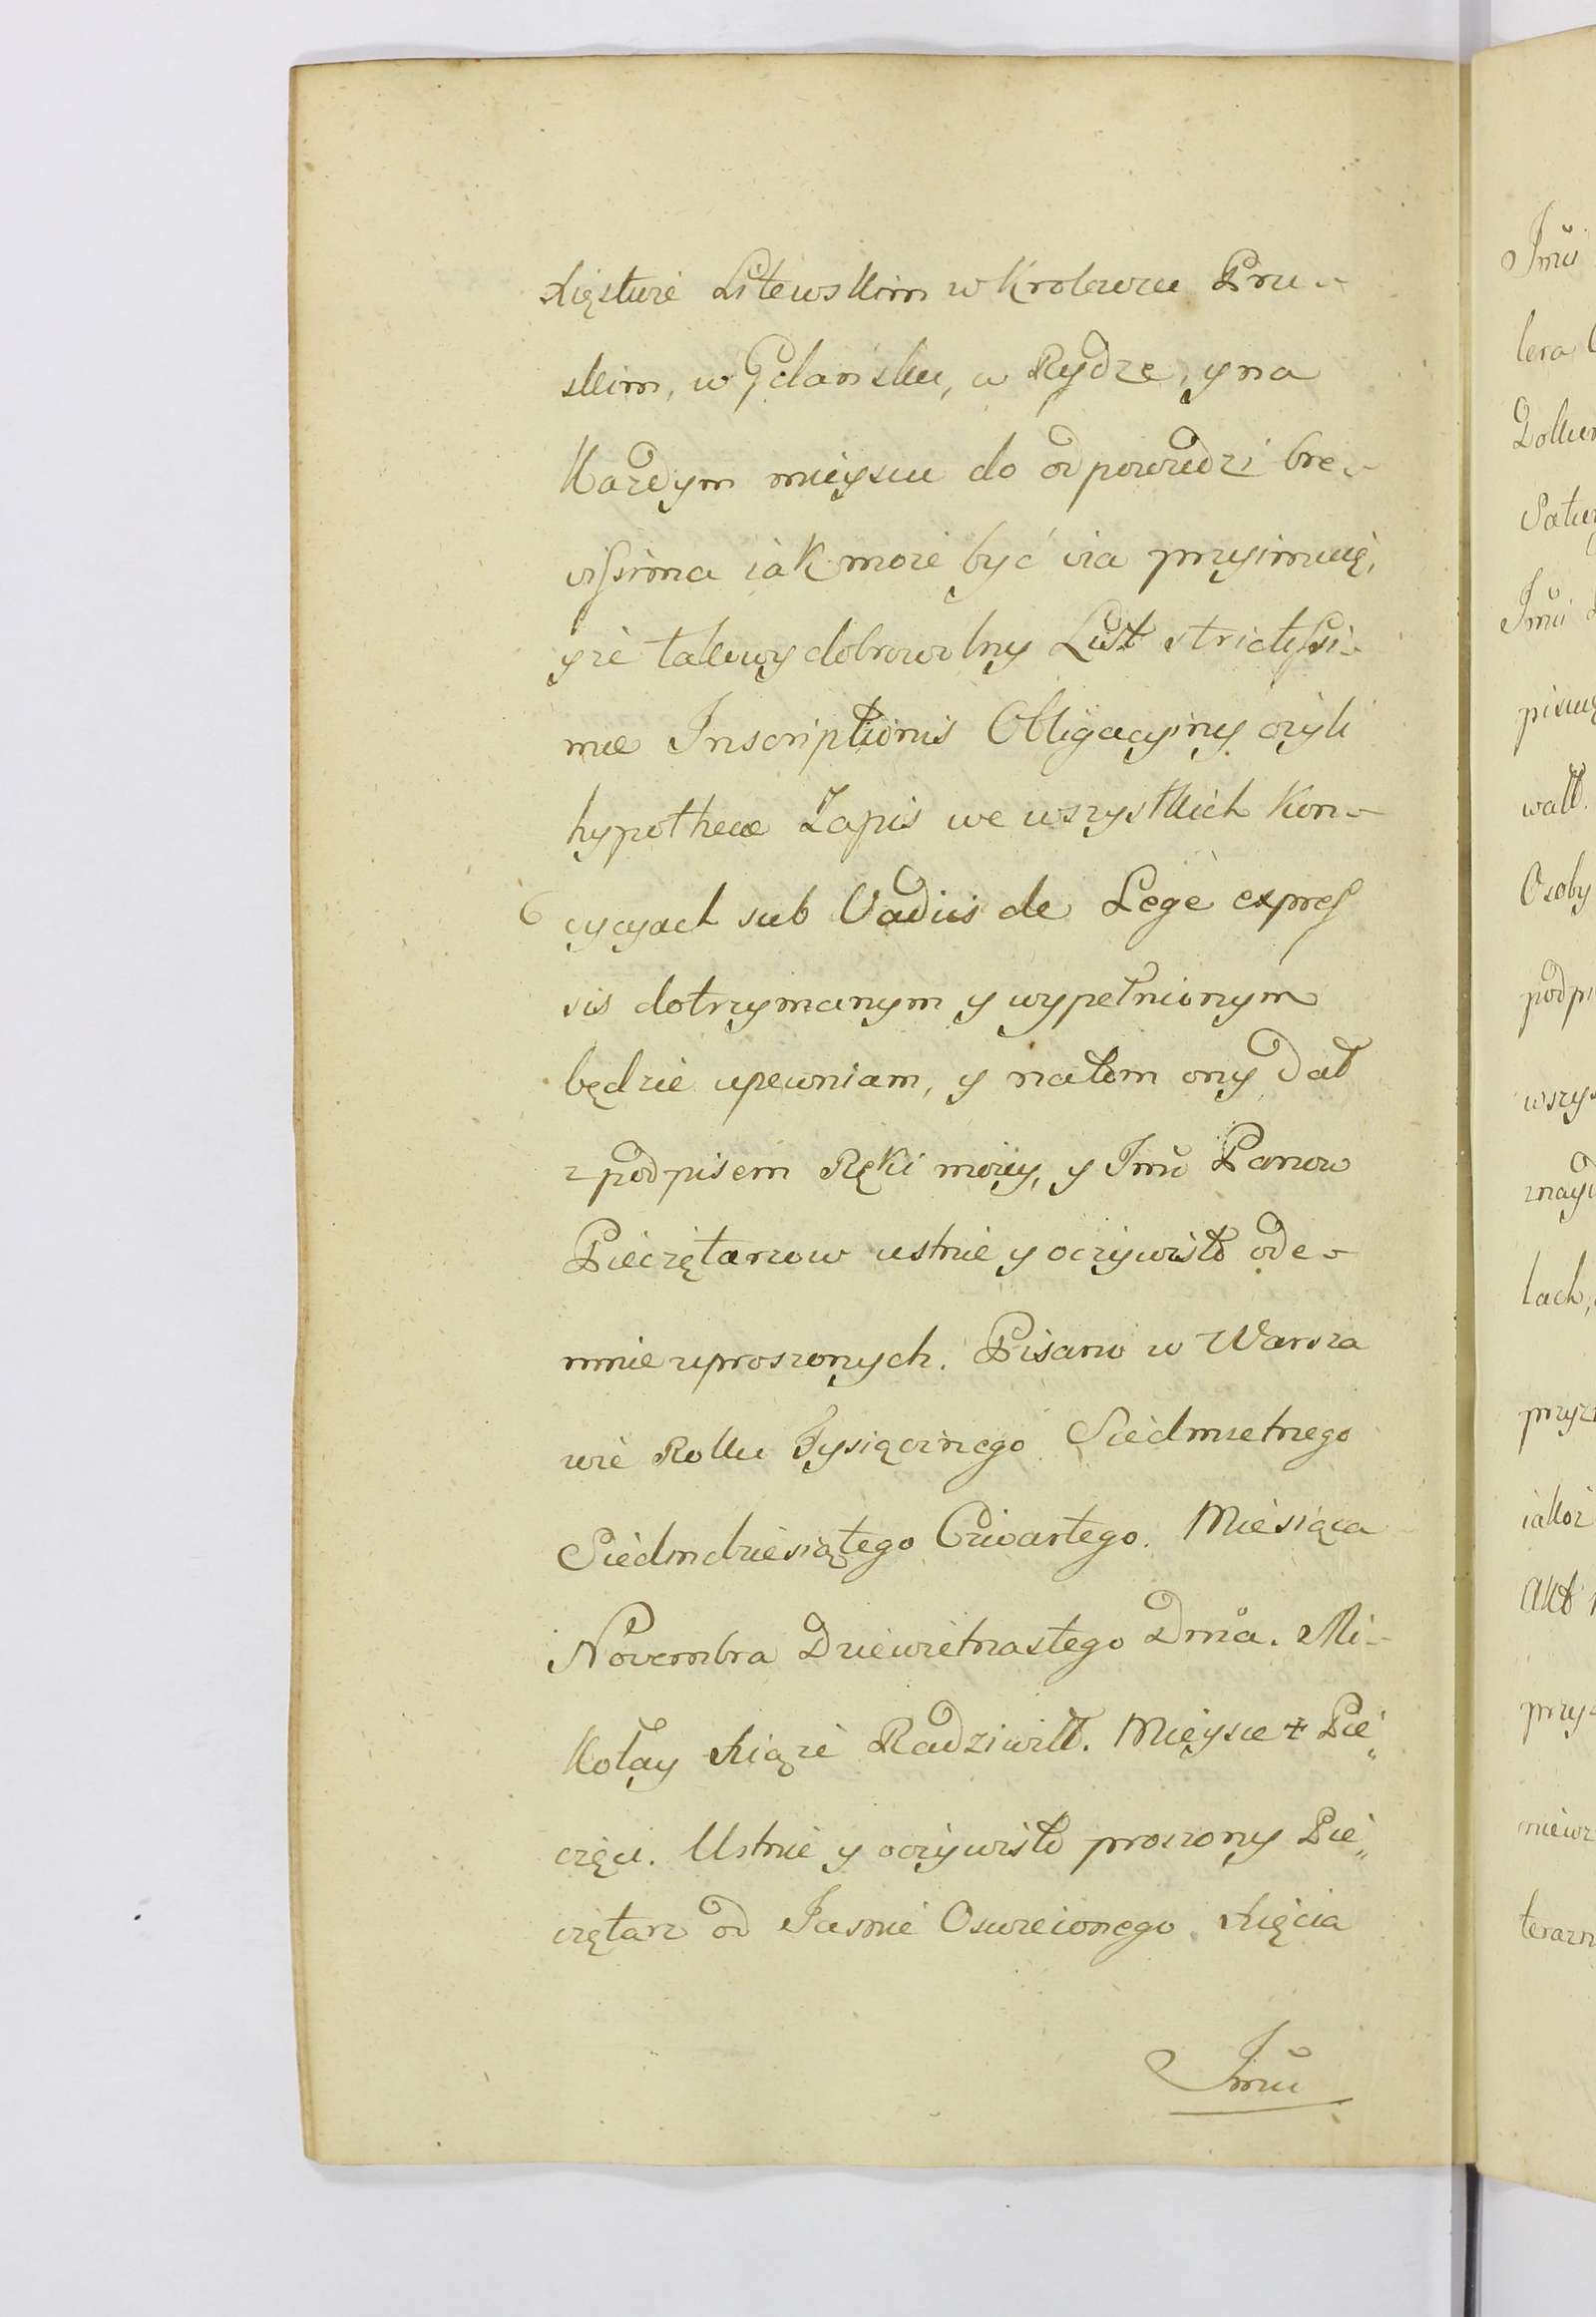 Xięstwie Litewskim w Krolewcu Pru-
skim, w Gdańsku, w Rydze, y na
Kazdym mieyscu do odpowiedzi bre-
vissima iak może być via przyimuię,
y że takowy dobrowolny List strictissi-
mae Inscriptionis Obligacyiny czyli
hypothecae Zapis we wszystkich Kon-
cycyach sub Vadiis de Lege expres
sis dotrzymanym y wypełnionym
będzie upewniam, y natom ony dał
z podpisem Ręki moiey, y Imć Panow
Pieczętarzow ustnie y oczywisto ode-
mnie uproszonych. Pisano w Warsza
wie Roku Tysiącznego Siedmsetnego
Siedmdziesiątego Czwartego. Miesiąca
Novembra Dziewietnastego Dnia. Mi-
Kołay Xiąże Radziwiłł. Mieysce + Pie„
częci. Ustnie y oczywisto proszony Pie„
czętarz od Jaśnie Oswieconego Xięcia
Imci
Imci
lera
pisuię
wałł.
Osoby
podpi
wszys
lach,
przyzn
iakoż
Akt
przys